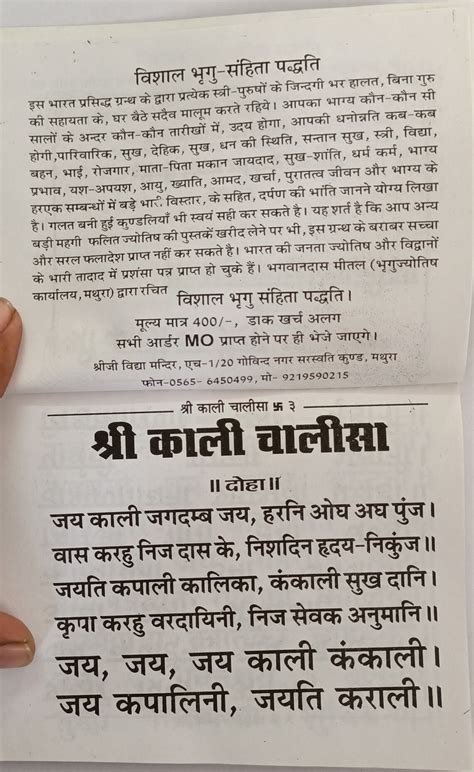 विशाल भृगु-संहिता पद्धति
इस भारत प्रसिद्ध ग्रन्थ के द्वारा प्रत्येक स्त्री-पुरुषों के जिन्दगी भर हालत, बिना गुरु
की सहायता के, घर बैठे सदैव मालूम करते रहिये। आपका भाग्य कौन-कौन सी
सालों के अन्दर कौन-कौन तारीखों में, उदय होगा, आपकी धनोन्नति कब-कब
होगी,पारिवारिक, सुख, देहिक, सुख, धन की स्थिति, सन्तान सुख, स्त्री, विद्या,
बहन, भाई, रोजगार, माता-पिता मकान जायदाद, सुख-शांति, धर्म कर्म, भाग्य
प्रभाव, यश-अपयश, आयु, ख्याति, आमद, खर्चा, पुरातत्व जीवन और भाग्य के
हरएक सम्बन्धों में बड़े भारी विस्तार, के सहित, दर्पण की भांति जानने योग्य लिखा
है। गलत बनी हुई कुण्डलियाँ भी स्वयं सही कर सकते है। यह शर्त है कि आप अन्य
बड़ी महगी फलित ज्योतिष की पुस्तकें खरीद लेने पर भी, इस ग्रन्थ के बराबर सच्चा
और सरल फलादेश प्राप्त नहीं कर सकते है। भारत की जनता ज्योतिष और विद्वानों
के भारी तादाद में प्रशंसा पत्र प्राप्त हो चुके हैं। भगवानदास मीतल (भृगुज्योतिष
कार्यालय, मथुरा) द्वारा रचित विशाल भृगु संहिता पद्धति।
मूल्य मात्र 400/-, डाक खर्च अलग
सभी आर्डर MO प्राप्त होने पर ही भेजे जाएगे।
श्रीजी विद्या मन्दिर, एच-1/20 गोविन्द नगर सरस्वति कुण्ड, मथुरा
फोन-0565- 6450499, मो- 9219590215
श्री काली चालीसा 卐 ३
श्री काली चालीसा
॥ दोहा॥
जय काली जगदम्ब जय, हरनि ओघ अघ पुंज।
वास करहु निज दास के, निशदिन हृदय-निकुंज॥
जयति कपाली कालिका, कंकाली सुख दानि।
कृपा करहु वरदायिनी, निज सेवक अनुमानि॥
जय, जय, जय काली कंकाली।
जय कपालिनी, जयति कराली॥